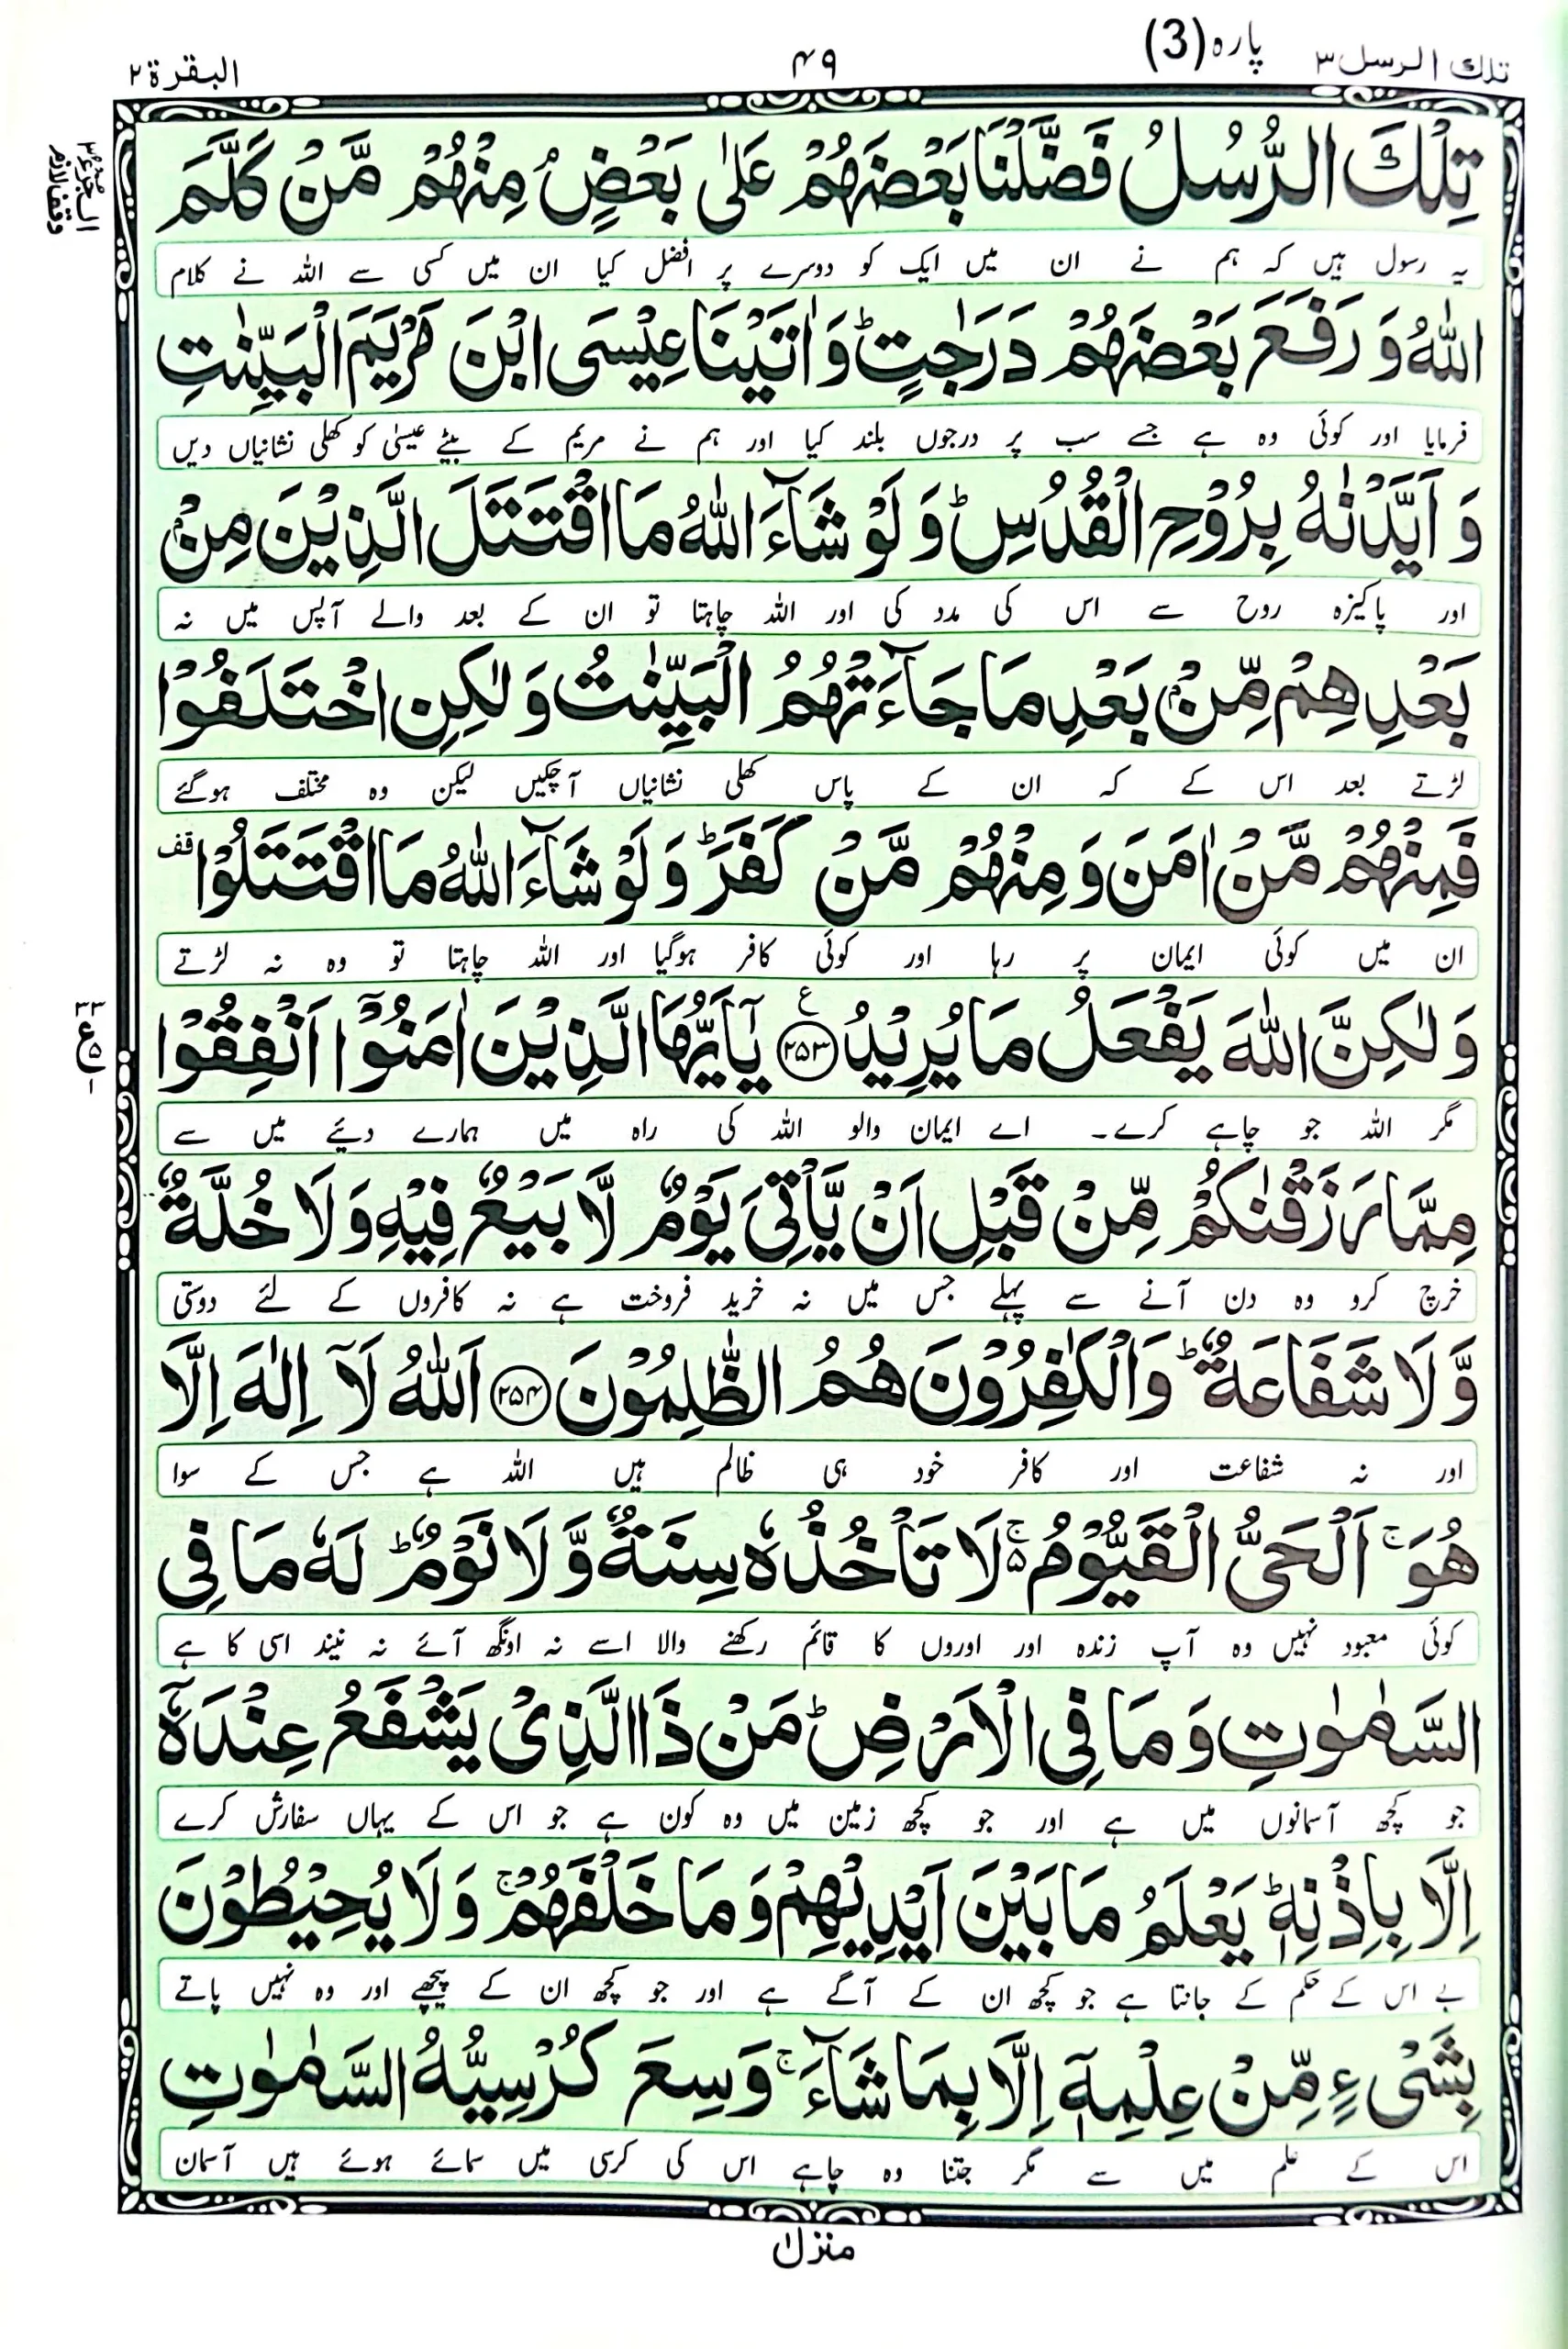 تلك الرسل ٣
پارہ (3)
۴۹
البقرۃ ۲
تِلْكَ الرُّسُلُ فَضَّلْنَا بَعْضَهُمْ عَلٰی بَعْضٍ ۘ مِنْهُمْ مَّنْ كَلَّمَ
یہ رسول ہیں کہ ہم نے ان میں ایک کو دوسرے پر افضل کیا ان میں کسی سے اللہ نے کلام
اللّٰهُ وَ رَفَعَ بَعْضَهُمْ دَرَجٰتٍ ؕ وَ اٰتَیْنَا عِیْسَی ابْنَ مَرْیَمَ الْبَیِّنٰتِ
فرمایا اور کوئی وہ ہے جسے سب پر درجوں بلند کیا اور ہم نے مریم کے بیٹے عیسیٰ کو کھلی نشانیاں دیں
وَ اَیَّدْنٰهُ بِرُوْحِ الْقُدُسِ ؕ وَ لَوْ شَآءَ اللّٰهُ مَا اقْتَتَلَ الَّذِیْنَ مِنْۢ
اور پاکیزہ روح سے اس کی مدد کی اور اللہ چاہتا تو ان کے بعد والے آپس میں نہ
بَعْدِهِمْ مِّنْۢ بَعْدِ مَا جَآءَتْهُمُ الْبَیِّنٰتُ وَ لٰكِنِ اخْتَلَفُوْا
لڑتے بعد اس کے کہ ان کے پاس کھلی نشانیاں آچکیں لیکن وہ مختلف ہوگئے
فَمِنْهُمْ مَّنْ اٰمَنَ وَ مِنْهُمْ مَّنْ كَفَرَ ؕ وَ لَوْ شَآءَ اللّٰهُ مَا اقْتَتَلُوْا قف
ان میں کوئی ایمان پر رہا اور کوئی کافر ہوگیا اور اللہ چاہتا تو وہ نہ لڑتے
وَ لٰكِنَّ اللّٰهَ یَفْعَلُ مَا یُرِیْدُ ﴿۲۵۳﴾ ع یٰۤاَیُّهَا الَّذِیْنَ اٰمَنُوْۤا اَنْفِقُوْا
مگر اللہ جو چاہے کرے۔ اے ایمان والو اللہ کی راہ میں ہمارے دیئے میں سے
مِمَّا رَزَقْنٰكُمْ مِّنْ قَبْلِ اَنْ یَّاْتِیَ یَوْمٌ لَّا بَیْعٌ فِیْهِ وَ لَا خُلَّةٌ
خرچ کرو وہ دن آنے سے پہلے جس میں نہ خرید فروخت ہے نہ کافروں کے لئے دوستی
وَّ لَا شَفَاعَةٌ ؕ وَ الْكٰفِرُوْنَ هُمُ الظّٰلِمُوْنَ ﴿۲۵۴﴾ اَللّٰهُ لَاۤ اِلٰهَ اِلَّا
اور نہ شفاعت اور کافر خود ہی ظالم ہیں اللہ ہے جس کے سوا
هُوَ ۚ اَلْحَیُّ الْقَیُّوْمُ ۚ۬ لَا تَاْخُذُهٗ سِنَةٌ وَّ لَا نَوْمٌ ؕ لَهٗ مَا فِی
کوئی معبود نہیں وہ آپ زندہ اور اوروں کا قائم رکھنے والا اسے نہ اونگھ آئے نہ نیند اسی کا ہے
السَّمٰوٰتِ وَ مَا فِی الْاَرْضِ ؕ مَنْ ذَا الَّذِیْ یَشْفَعُ عِنْدَهٗۤ
جو کچھ آسمانوں میں ہے اور جو کچھ زمین میں وہ کون ہے جو اس کے یہاں سفارش کرے
اِلَّا بِاِذْنِهٖ ؕ یَعْلَمُ مَا بَیْنَ اَیْدِیْهِمْ وَ مَا خَلْفَهُمْ ۚ وَ لَا یُحِیْطُوْنَ
بے اس کے حکم کے جانتا ہے جو کچھ ان کے آگے ہے اور جو کچھ ان کے پیچھے اور وہ نہیں پاتے
بِشَیْءٍ مِّنْ عِلْمِهٖۤ اِلَّا بِمَا شَآءَ ۚ وَسِعَ كُرْسِیُّهُ السَّمٰوٰتِ
اس کے علم میں سے مگر جتنا وہ چاہے اس کی کرسی میں سمائے ہوئے ہیں آسمان
منزل ۱